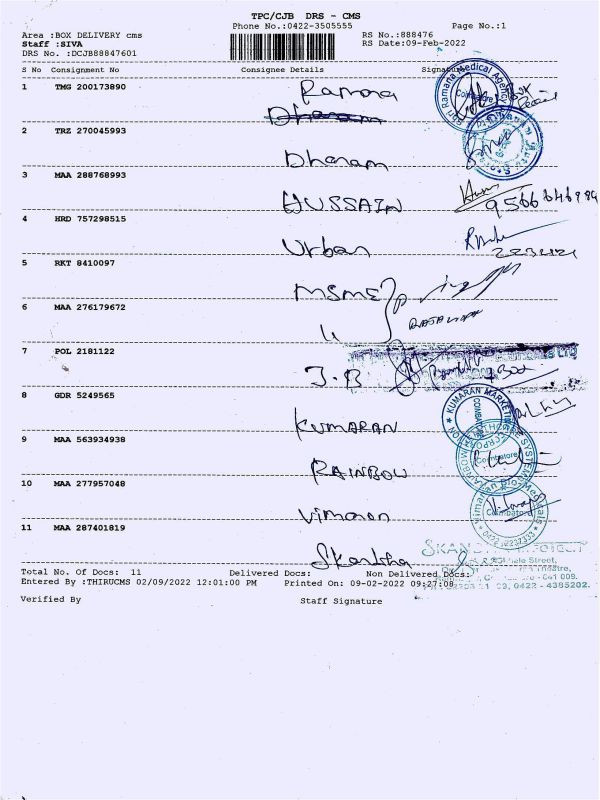 TPC/CJB DRS - CMS
Phone No.:0422-3505555 Page No.:1
Area :BOX DELIVERY cms RS No.:888476
Staff :SIVA RS Date:09-Feb-2022
DRS No. :DCJB88847601
S No Consignment No Consignee Details Signature
1 TMG 200173890 Ramana
Sri Ramana Medical Agency Coimbatore
Dharani
2 TRZ 270045993 Dharani
3 MAA 288768993 HUSSAIN
9566646984
4 HRD 757298515 Urban
5 RKT 8410097 MSME
6 MAA 276179672 "
7 POL 2181122 J.B
8 GDR 5249565 KUMARAN
KUMARAN MARKETING
9 MAA 563934938 RAINBOW
Coimbatore
10 MAA 277957048 Vimaran
Coimbatore
11 MAA 287401819 Skandha
Street,
641 009.
0422 - 4385202.
Total No. Of Docs: 11 Delivered Docs: Non Delivered Docs:
Entered By :THIRUCMS 02/09/2022 12:01:00 PM Printed On: 09-02-2022 09:27:08
Verified By Staff Signature